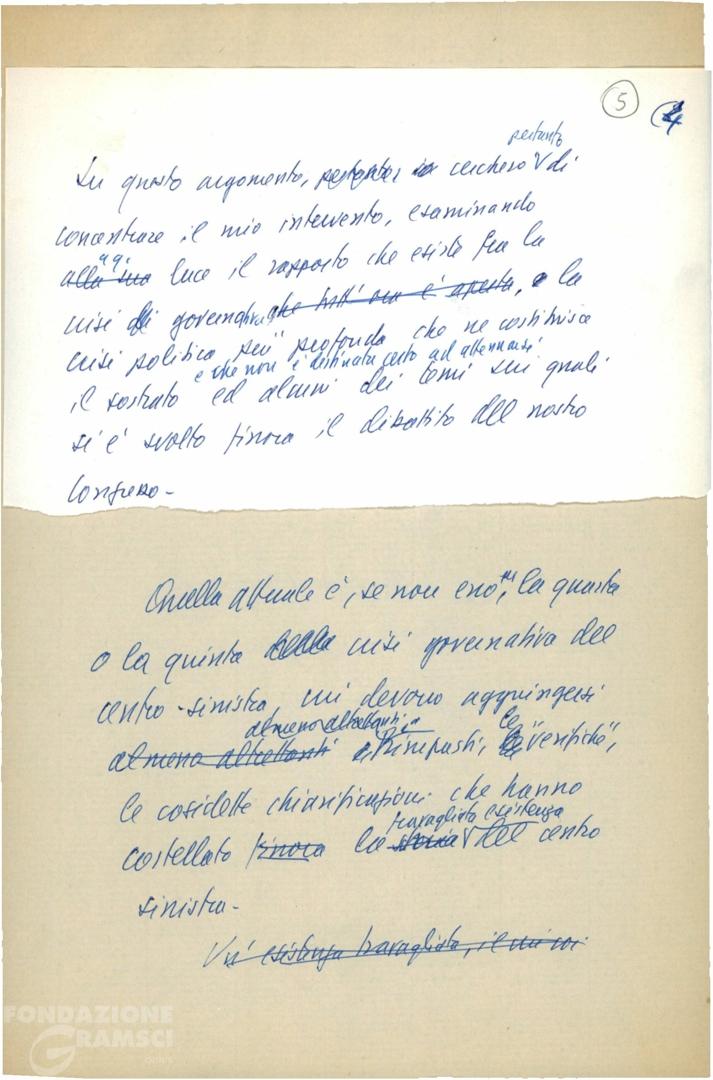 5 4
pertanto
Su questo argomento, cercherò di
concentrare il mio intervento, esaminando
alla sua luce il rapporto che esiste fra la
crisi di governo che tutt'ora è aperta, e la
crisi politica più profonda che ne costituisce
e che non è destinata certo ad attenuarsi
il sostrato ed alcuni dei temi sui quali
si è svolto finora il dibattito del nostro
Congresso -
Quella attuale è, se non erro, la quarta
o la quinta della crisi governativa del
centro-sinistra, cui devono aggiungersi
almeno altrettanti
almeno altrettanti rimpasti, le "verifiche",
le cosidette chiarificazioni che hanno
travagliata esistenza
costellato finora la storia del centro
sinistra -
Un'esistenza travagliata, il cui
FONDAZIONE
GRAMSCI
onlus